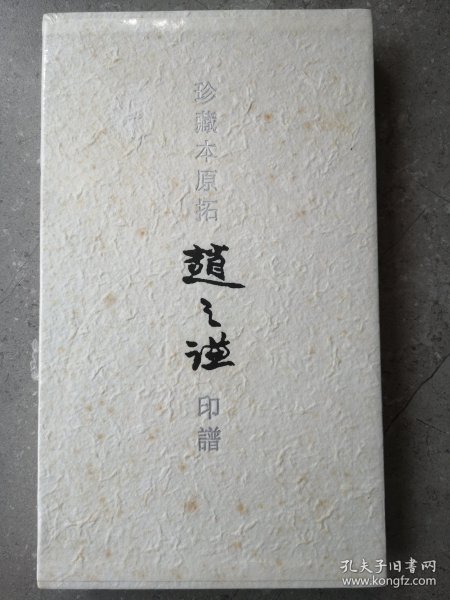 珍藏本原拓
趙之谦
印譜
孔夫子旧书网
www.kongfz.com